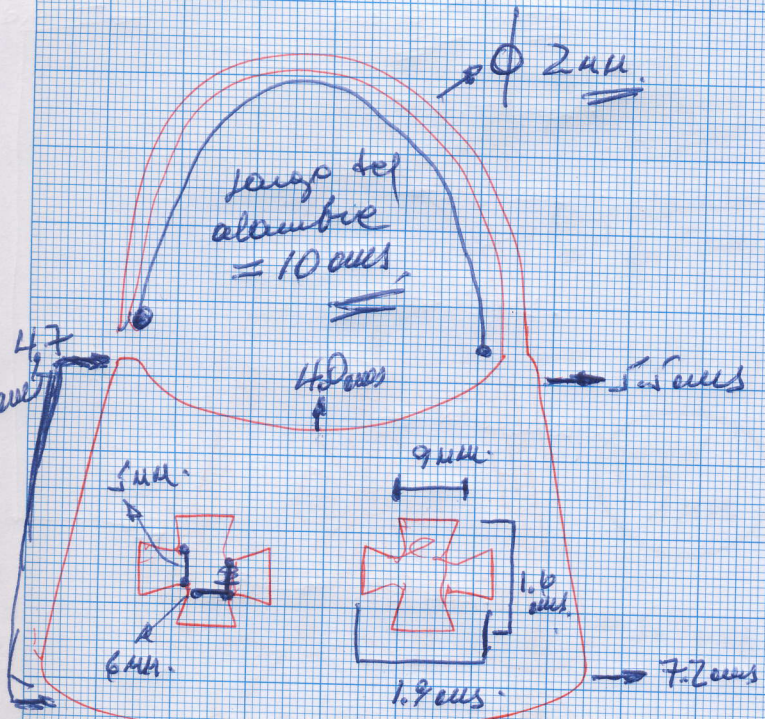 ϕ 2mm.
Largo del
alambre
= 10 cms
4.7
cms
4.0 cms
5.5 cms
9 mm.
5 mm.
1.6
cms.
6 mm.
1.9 cms.
7.2 cms